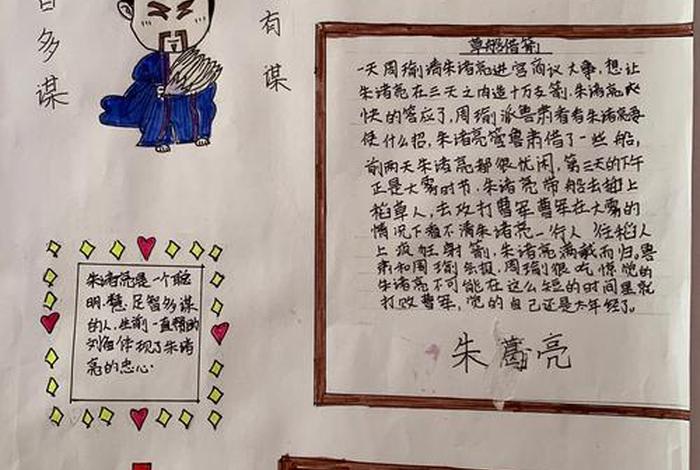 百多谋
有谋
草船借箭
一天周瑜请朱诸亮进宫商议大事，想让
朱诸亮在三天之内造十万支箭，朱诸亮爽
快的答应了，周瑜派鲁肃看看朱诸亮要
使什么招，朱诸亮管鲁肃借了一些船，
前两天朱诸亮都很忧闲，第三天的下午
正是大雾时节，朱诸亮带船去
稻草人，去攻打曹军曹军在大雾的
情况下看不清朱诸亮一行人往稻人
上疯狂射箭，朱诸亮满载而归。鲁
肃和周瑜汇报，周瑜很吃惊觉的
朱诸亮不可能在这么短的时间里就
打败曹军，觉的自己还是太年轻了。
朱葛亮
朱诸亮是一个聪
明，慧，足智多谋
的人，生前一直辅助
刘备体现了朱诸
亮的忠心.